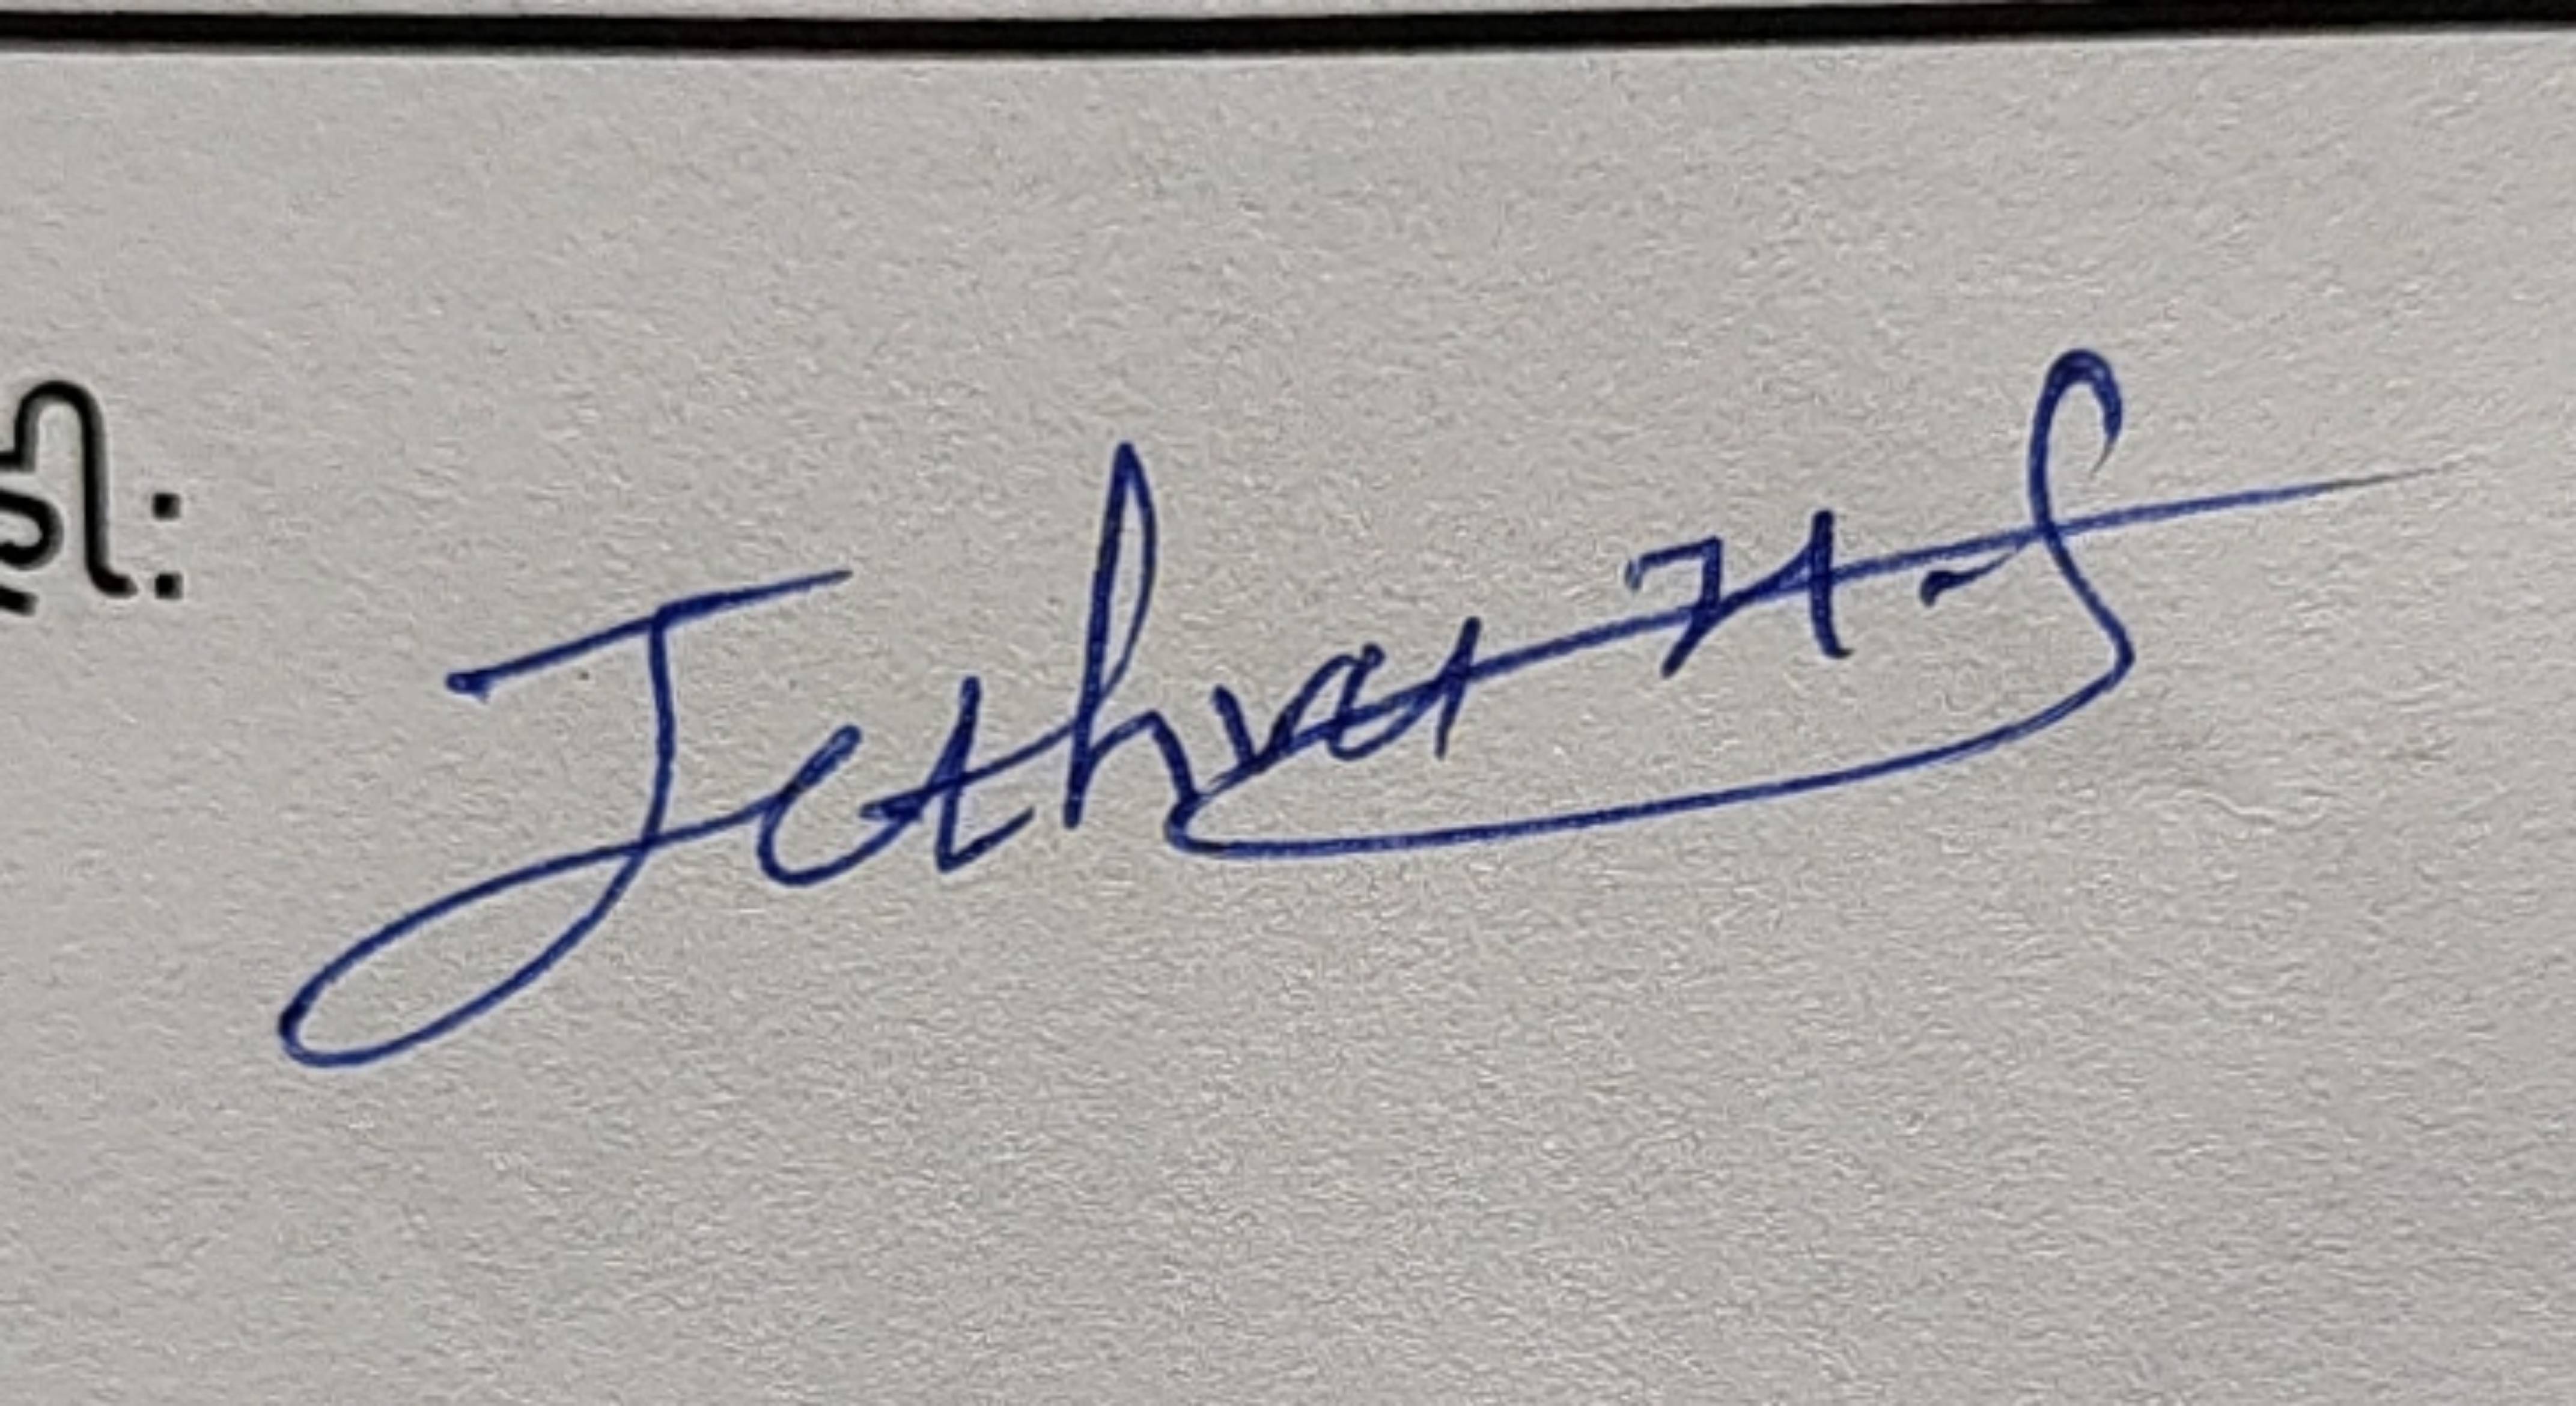 Jethva H.S